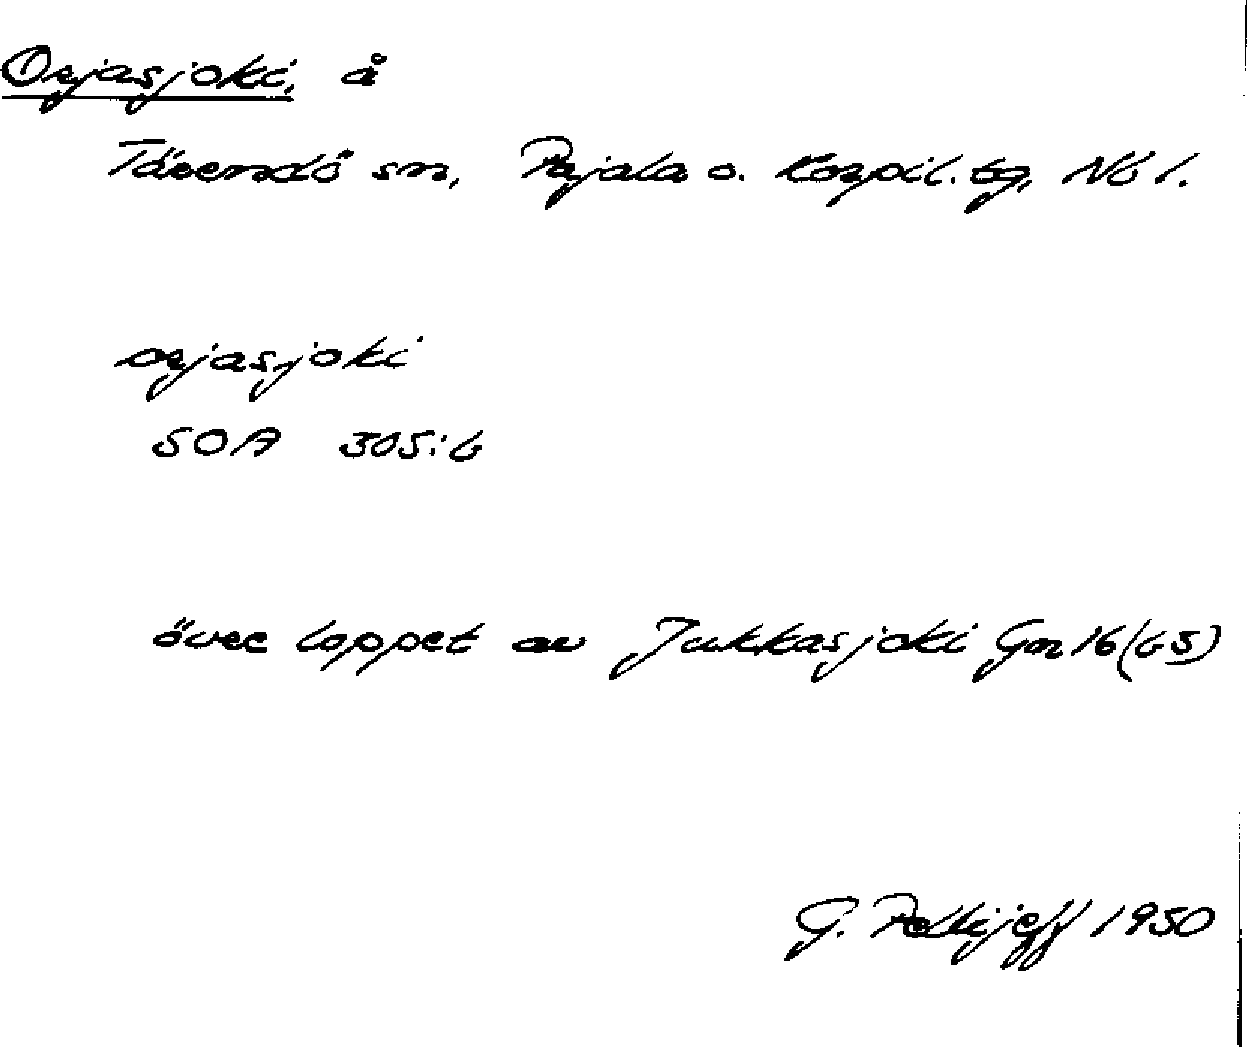 Orjasjoki, å
Tärendö sn, Pajala o. Korpil. tg, Nb l.
orjasjoki
SOA 305:6
övre loppet av Jukkasjoki Gm 16 (65)
G. Pellijeff 1950